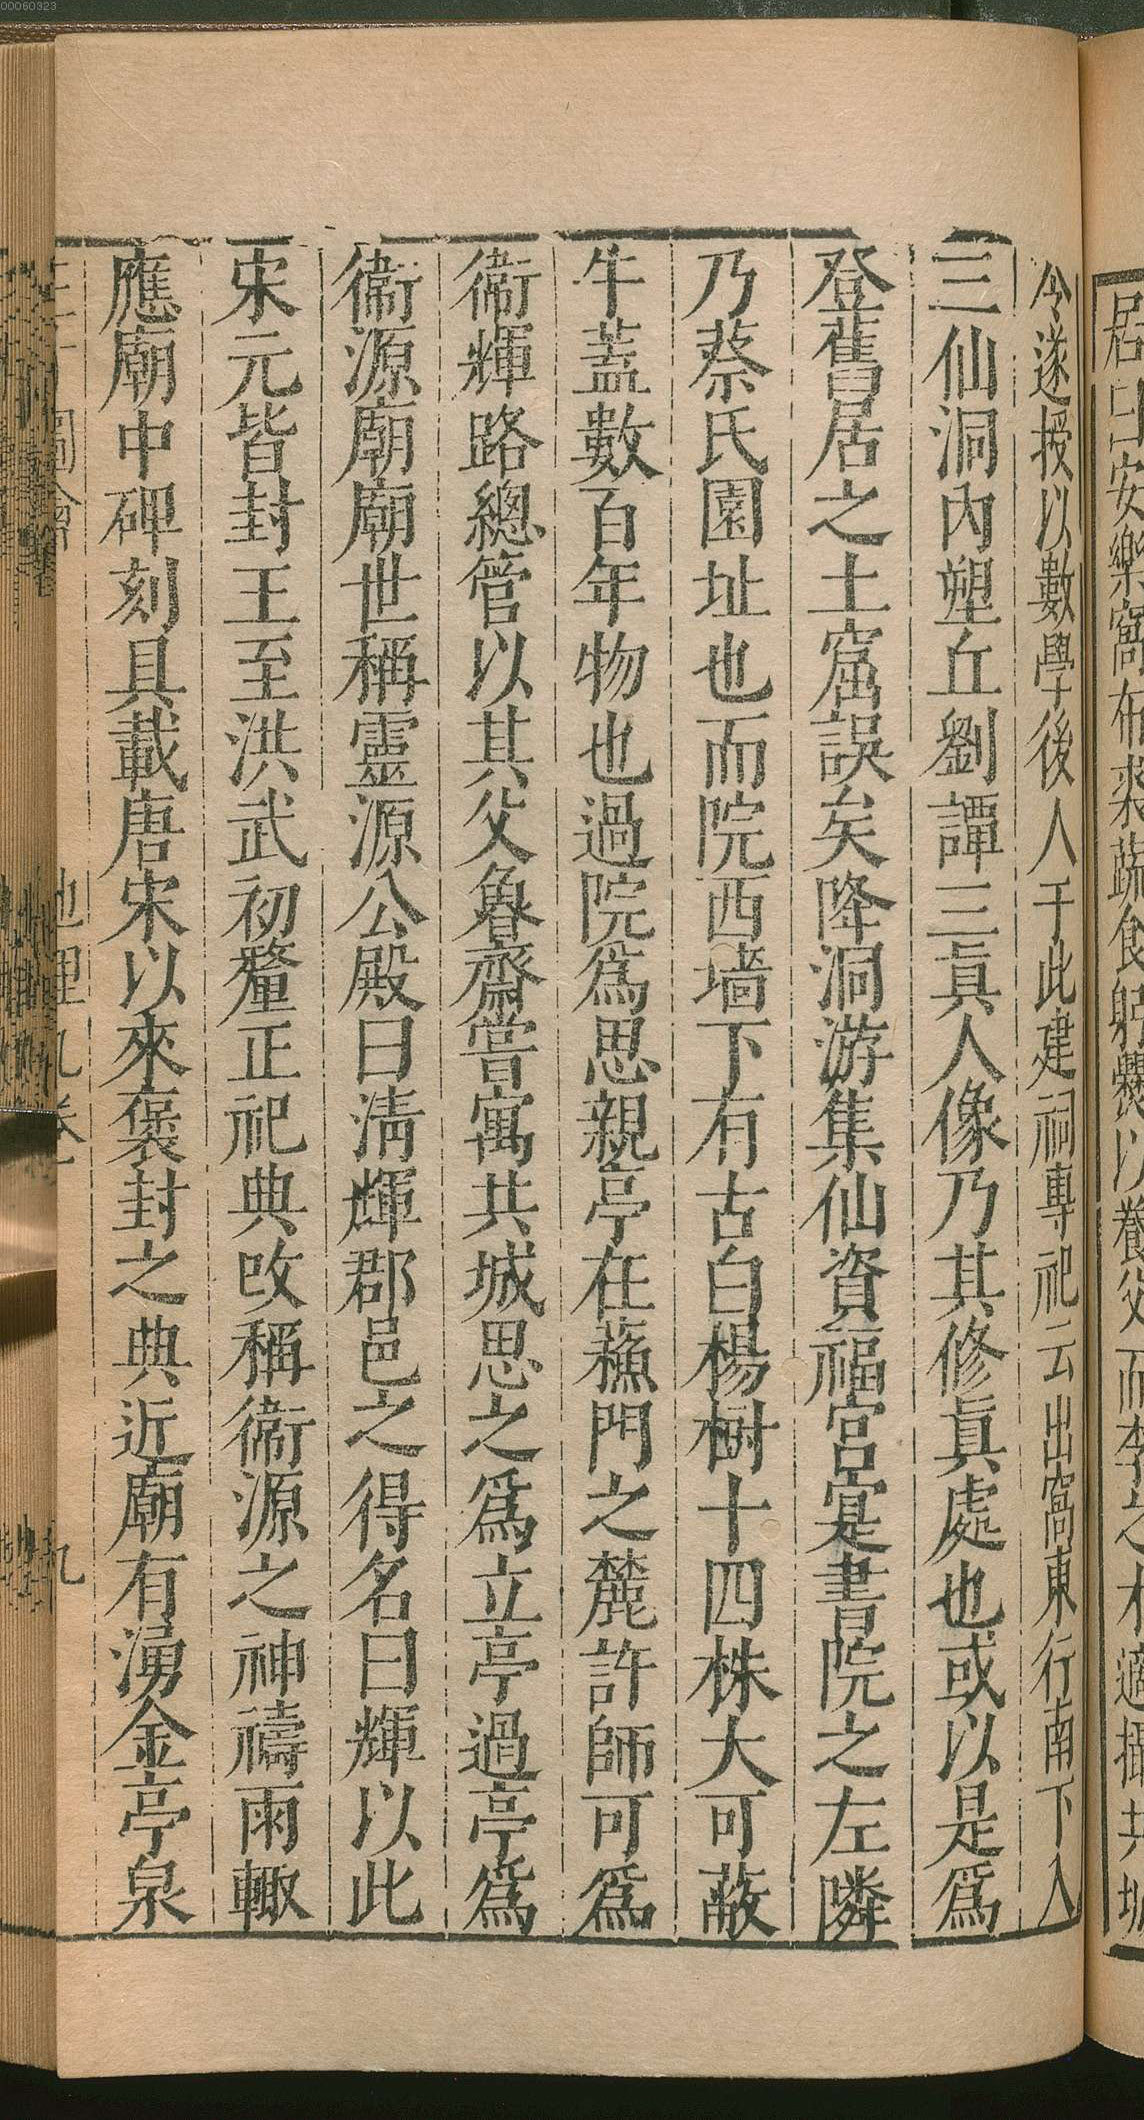 00060323
居 安樂窩布裘蔬食躬爨以養父而李之才適攝共城
令遂授以數學後人于此建祠專祀云出窩東行南下入
三仙洞內塑丘劉譚三眞人像乃其修眞處也或以是爲
登舊居之土窟誤矣降洞游集仙資福宮寔書院之左隣
乃蔡氏園址也而院西墻下有古白楊樹十四株大可蔽
牛蓋數百年物也過院爲思親亭在蘓門之麓許師可爲
衞輝路總管以其父魯齋嘗寓共城思之爲立亭過亭爲
衞源廟廟世稱靈源公殿曰淸輝郡邑之得名曰輝以此
宋元皆封王至洪武初釐正祀典改稱衞源之神禱雨輙
應廟中碑刻具載唐宋以來褒封之典近廟有湧金亭泉
圖會 地理九卷 九